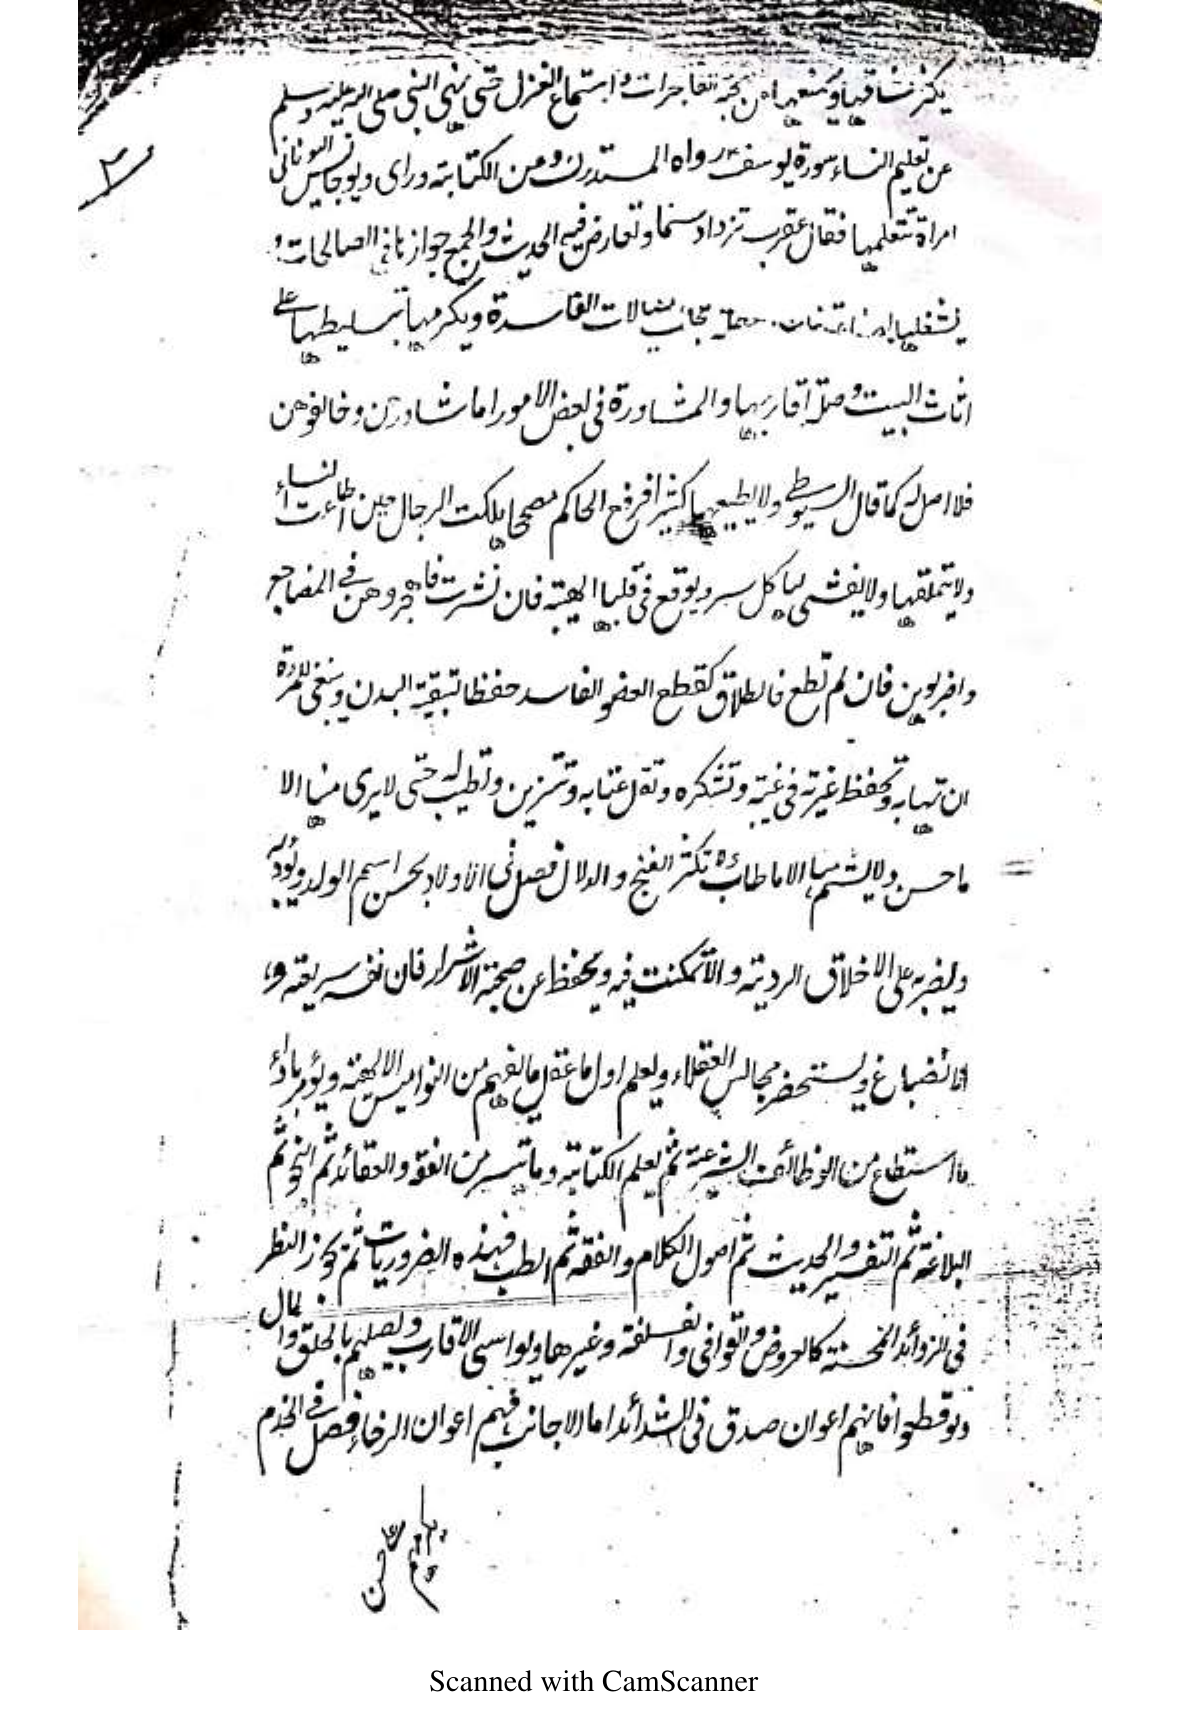 يكثر شقاقها ويمنعها من صحبة الفاجرات واستماع الغزل حتى نهى النبي صلى الله عليه وسلم
٣
عن تعليم النساء سورة يوسف رواه المستدرك ومن الكتابة وراى ديوجانس اليونانى
امراة تتعلمها فقال عقرب تزداد سما وتعارض فيه الحديث والجمع جوازها فى الصالحات و
يشغلها الفاسدة ويكرمها بتسليطها على
اثاث البيت وصلة اقاربها والمشاورة فى بعض الامور اما شاوروهن وخالفوهن
فلا اصل له كما قال السيوطى ولا يطيعها كثيرا فرفع الحاكم مصححا هلكت الرجال حين اطاعت النساء
ولا يتملقها ولا يفشى لها كل سر ويوقع فى قلبها الهيبة فان نشزت فاهجروهن فى المضاجع
واضربوهن فان لم تطع فالطلاق كقطع العضو الفاسد حفظا لبقية البدن وينبغى للمرءة
ان تهابه وتحفظ غيرته فى غيبته وتشكره وتقل عتابه وتتزين وتطيب له حتى لا يرى منها الا
ما حسن ولا يشم منها الا ما طاب تكثر الغنج والدلال فصل فى الاولاد يحسن اسم الولد ويؤدبه
ويضربه على الاخلاق الردية والا تمكنت فيه ويحفظ عن صحبة الاشرار فان نفسه سريعة
الانضباغ ويستحضر مجالس العقلاء ويعلم اول ما عقل ما يفهم من النواميس الالهية ويؤمر باداء
ما استطاع من الوظائف الشرعية ثم يعلم الكتابة وما تيسر من الفقه والعقائد ثم النحو ثم
البلاغة ثم التفسير والحديث ثم اصول الكلام والفقه ثم الطب فهذه الضروريات ثم يجوز النظر
فى الزوائد المحسنة كالعروض والقوافى والفلسفة وغيرها ويواسى الاقارب ويصلهم بالخلق والمال
ولو قطعوا فانهم اعوان صدق فى الشدائد اما الاجانب فهم اعوان الرخاء فصل فى الخدم
Scanned with CamScanner